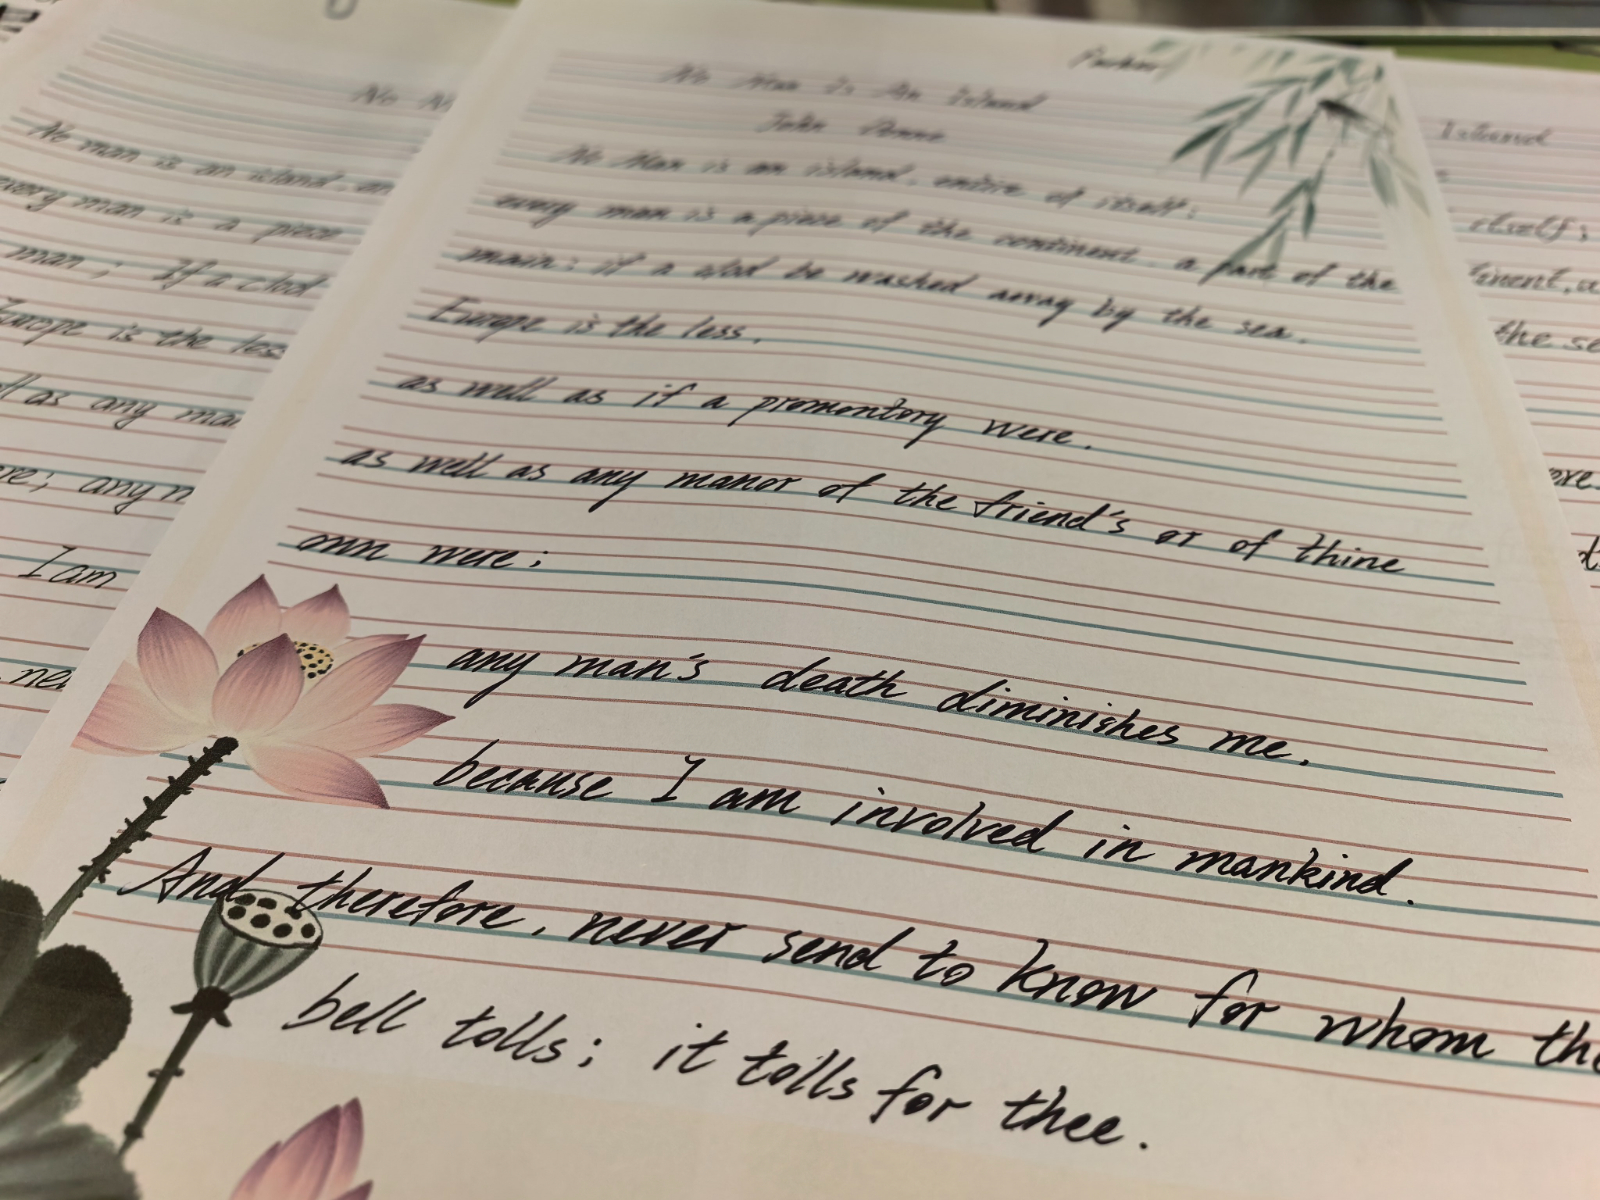 No Man Is An Island
John Donne
No Man is an island, entire of itself;
every man is a piece of the continent, a part of the
main; if a clod be washed away by the sea,
Europe is the less,
as well as if a promontory were,
as well as any manor of the friend's or of thine
own were;
any man's death diminishes me,
because I am involved in mankind.
And therefore, never send to know for whom the
bell tolls; it tolls for thee.
No
No man is an island,
every man is a piece
man; If a clod
Europe is the less
as any
any
I am
Island
itself;
the